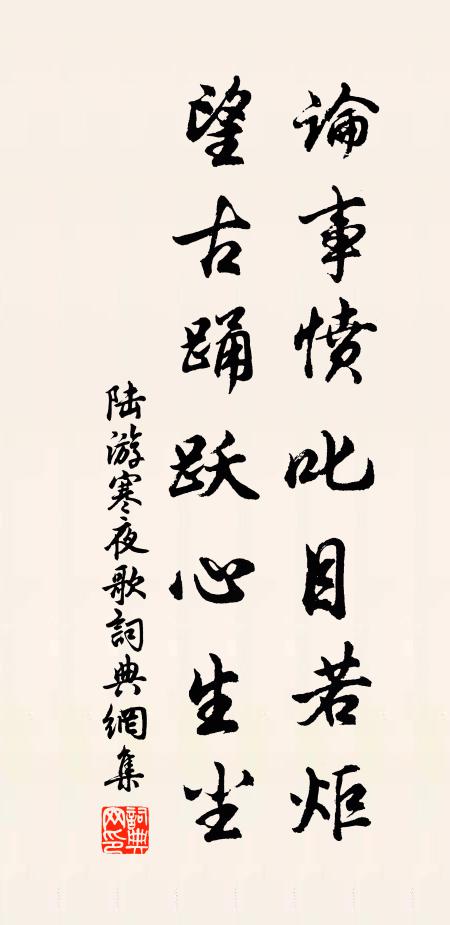 論事憤叱目若炬
望古踊跃心生尘
陆游寒夜歌詞典網集
詞典